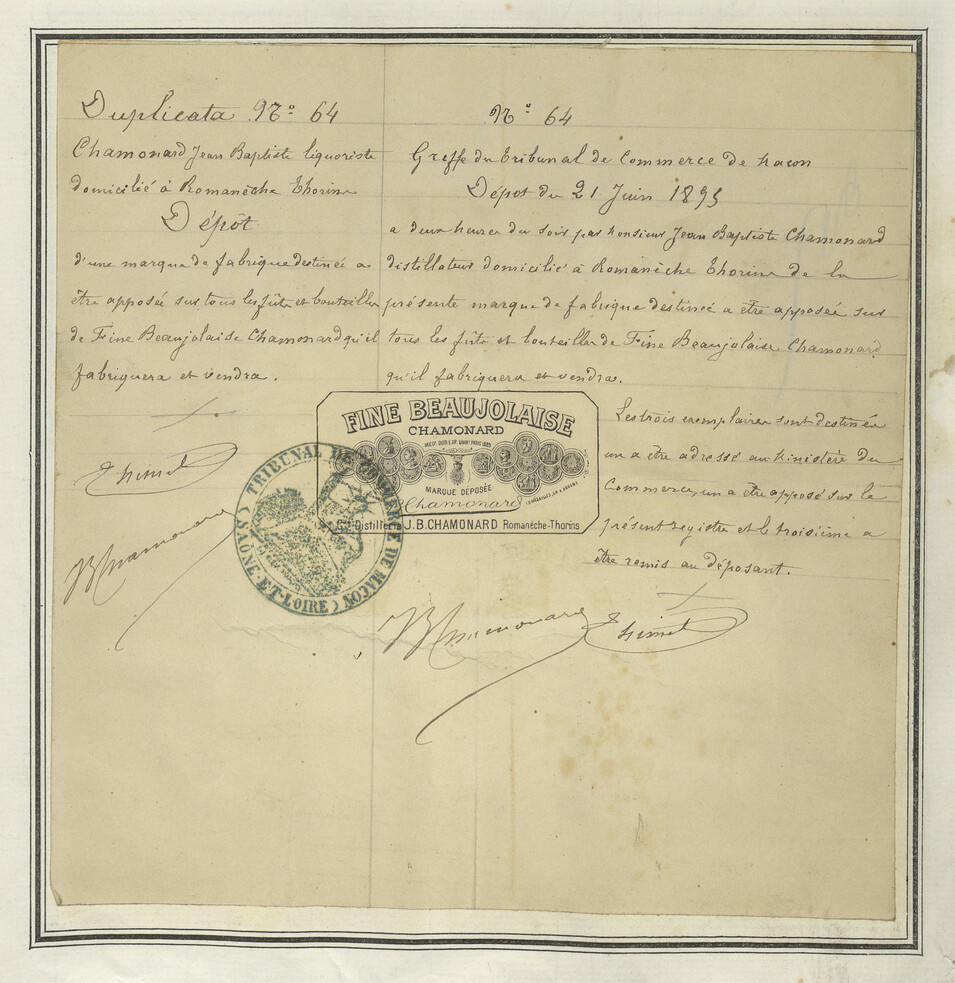 Duplicata No 64
Chamonard Jean Baptiste liquoriste
domicilié à Romanèche Thorins
Dépôt
d'une marque de fabrique destinée a
être apposée sur tous les fûts et bouteilles
de Fine Beaujolaise Chamonard qu'il
fabriquera et vendra.
Thimel
JB Chamonard
No 64
Greffe du Tribunal de Commerce de Macon
Dépot du 21 Juin 1895
a deux heures du soir par Monsieur Jean Baptiste Chamonard
distillateur domicilié à Romanèche Thorins de la
présente marque de fabrique destinée a etre apposée sur
tous les fûts et bouteilles de Fine Beaujolaise Chamonard
qu'il fabriquera et vendra.
Les trois exemplaires sont destinés
un a être adressé au Ministère du
Commerce, un a être apposé sur le
présent registre et le troisième a
être remis au déposant.
JB Chamonard
Thimel
FINE BEAUJOLAISE
CHAMONARD
MARQUE DÉPOSÉE
Chamonard
Distillerie J.B. CHAMONARD Romanèche-Thorins
TRIBUNAL DE COMMERCE DE MACON
(SAÔNE-ET-LOIRE)